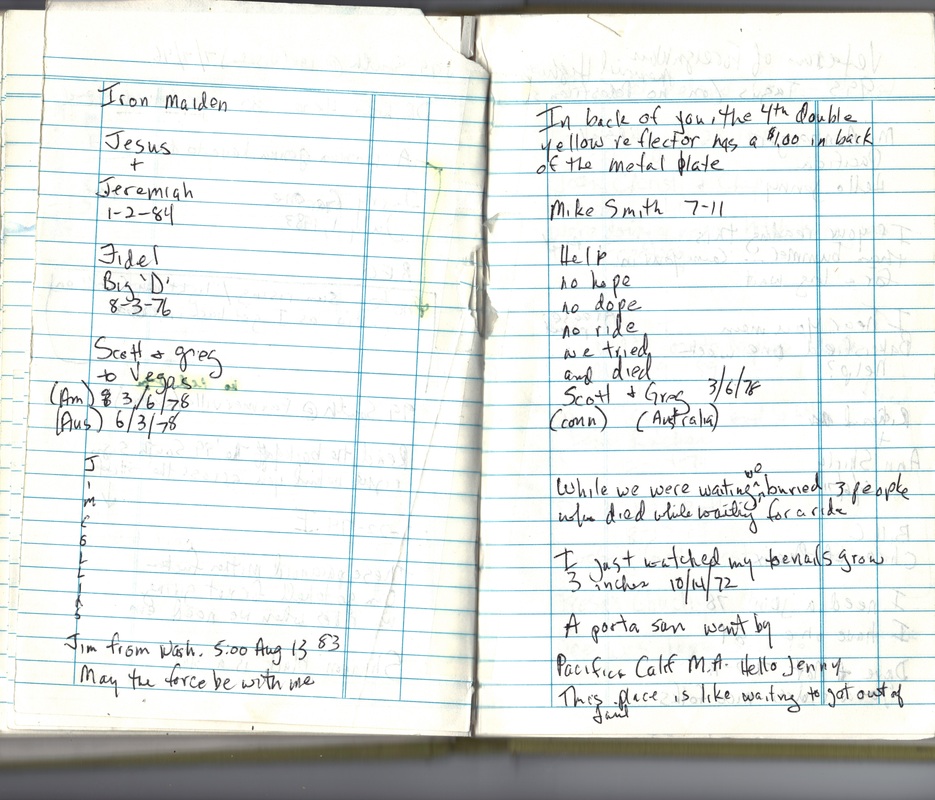 Iron Maiden
Jesus
+
Jeremiah
1-2-84
Fidel
Big 'D'
8-3-76
Scott & greg
to Vegas
(Am) 3/6/78
(Aus) 6/3/78
J
i
m
Jim from Wash. 5:00 Aug 13 83
May the force be with me
In back of you, the 4th double
yellow reflector has a $1.00 in back
of the metal plate
Mike Smith 7-11
Help
no hope
no dope
no ride
we tried
and died
Scott & Greg 3/6/78
(conn) (Australia)
While we were waiting we buried 3 people
who died while waiting for a ride
I just watched my toenails grow
3 inches 10/14/72
A porta san went by
Pacifica Calif M.A. Hello Jenny
This place is like waiting to got out of